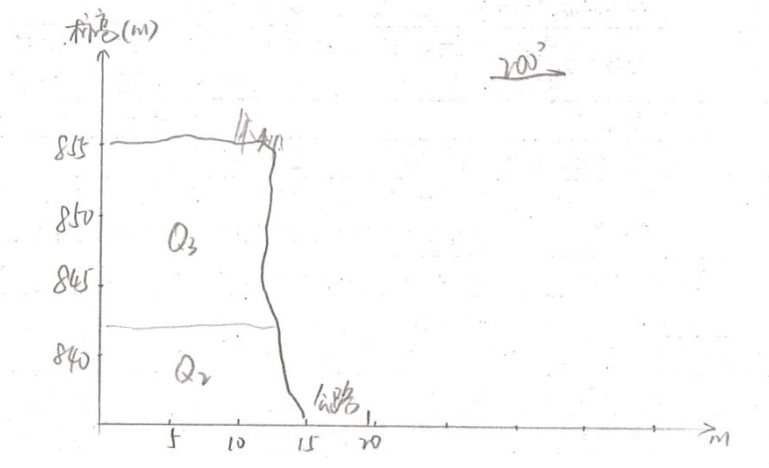 标高(m)
200°
855
850
Q3
845
840
Q2
公路
5 10 15 20 m